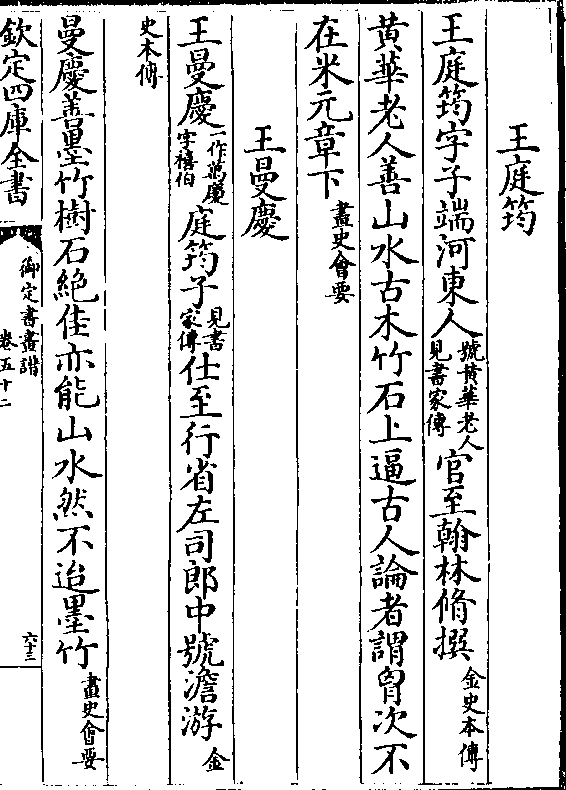 王庭筠
王庭筠字子端河東人號黄華老人見書家傳官至翰林脩撰金史本傳
黄華老人善山水古木竹石上逼古人論者謂胷次不
在米元章下畫史會要
王曼慶
王曼慶一作萬慶字禧伯庭筠子見書家傳仕至行省左司郎中號澹游金
史本傳
曼慶善墨竹樹石絶佳亦能山水然不迨墨竹畫史會要
欽定四庫全書
御定書畫譜
卷五十二
六十三